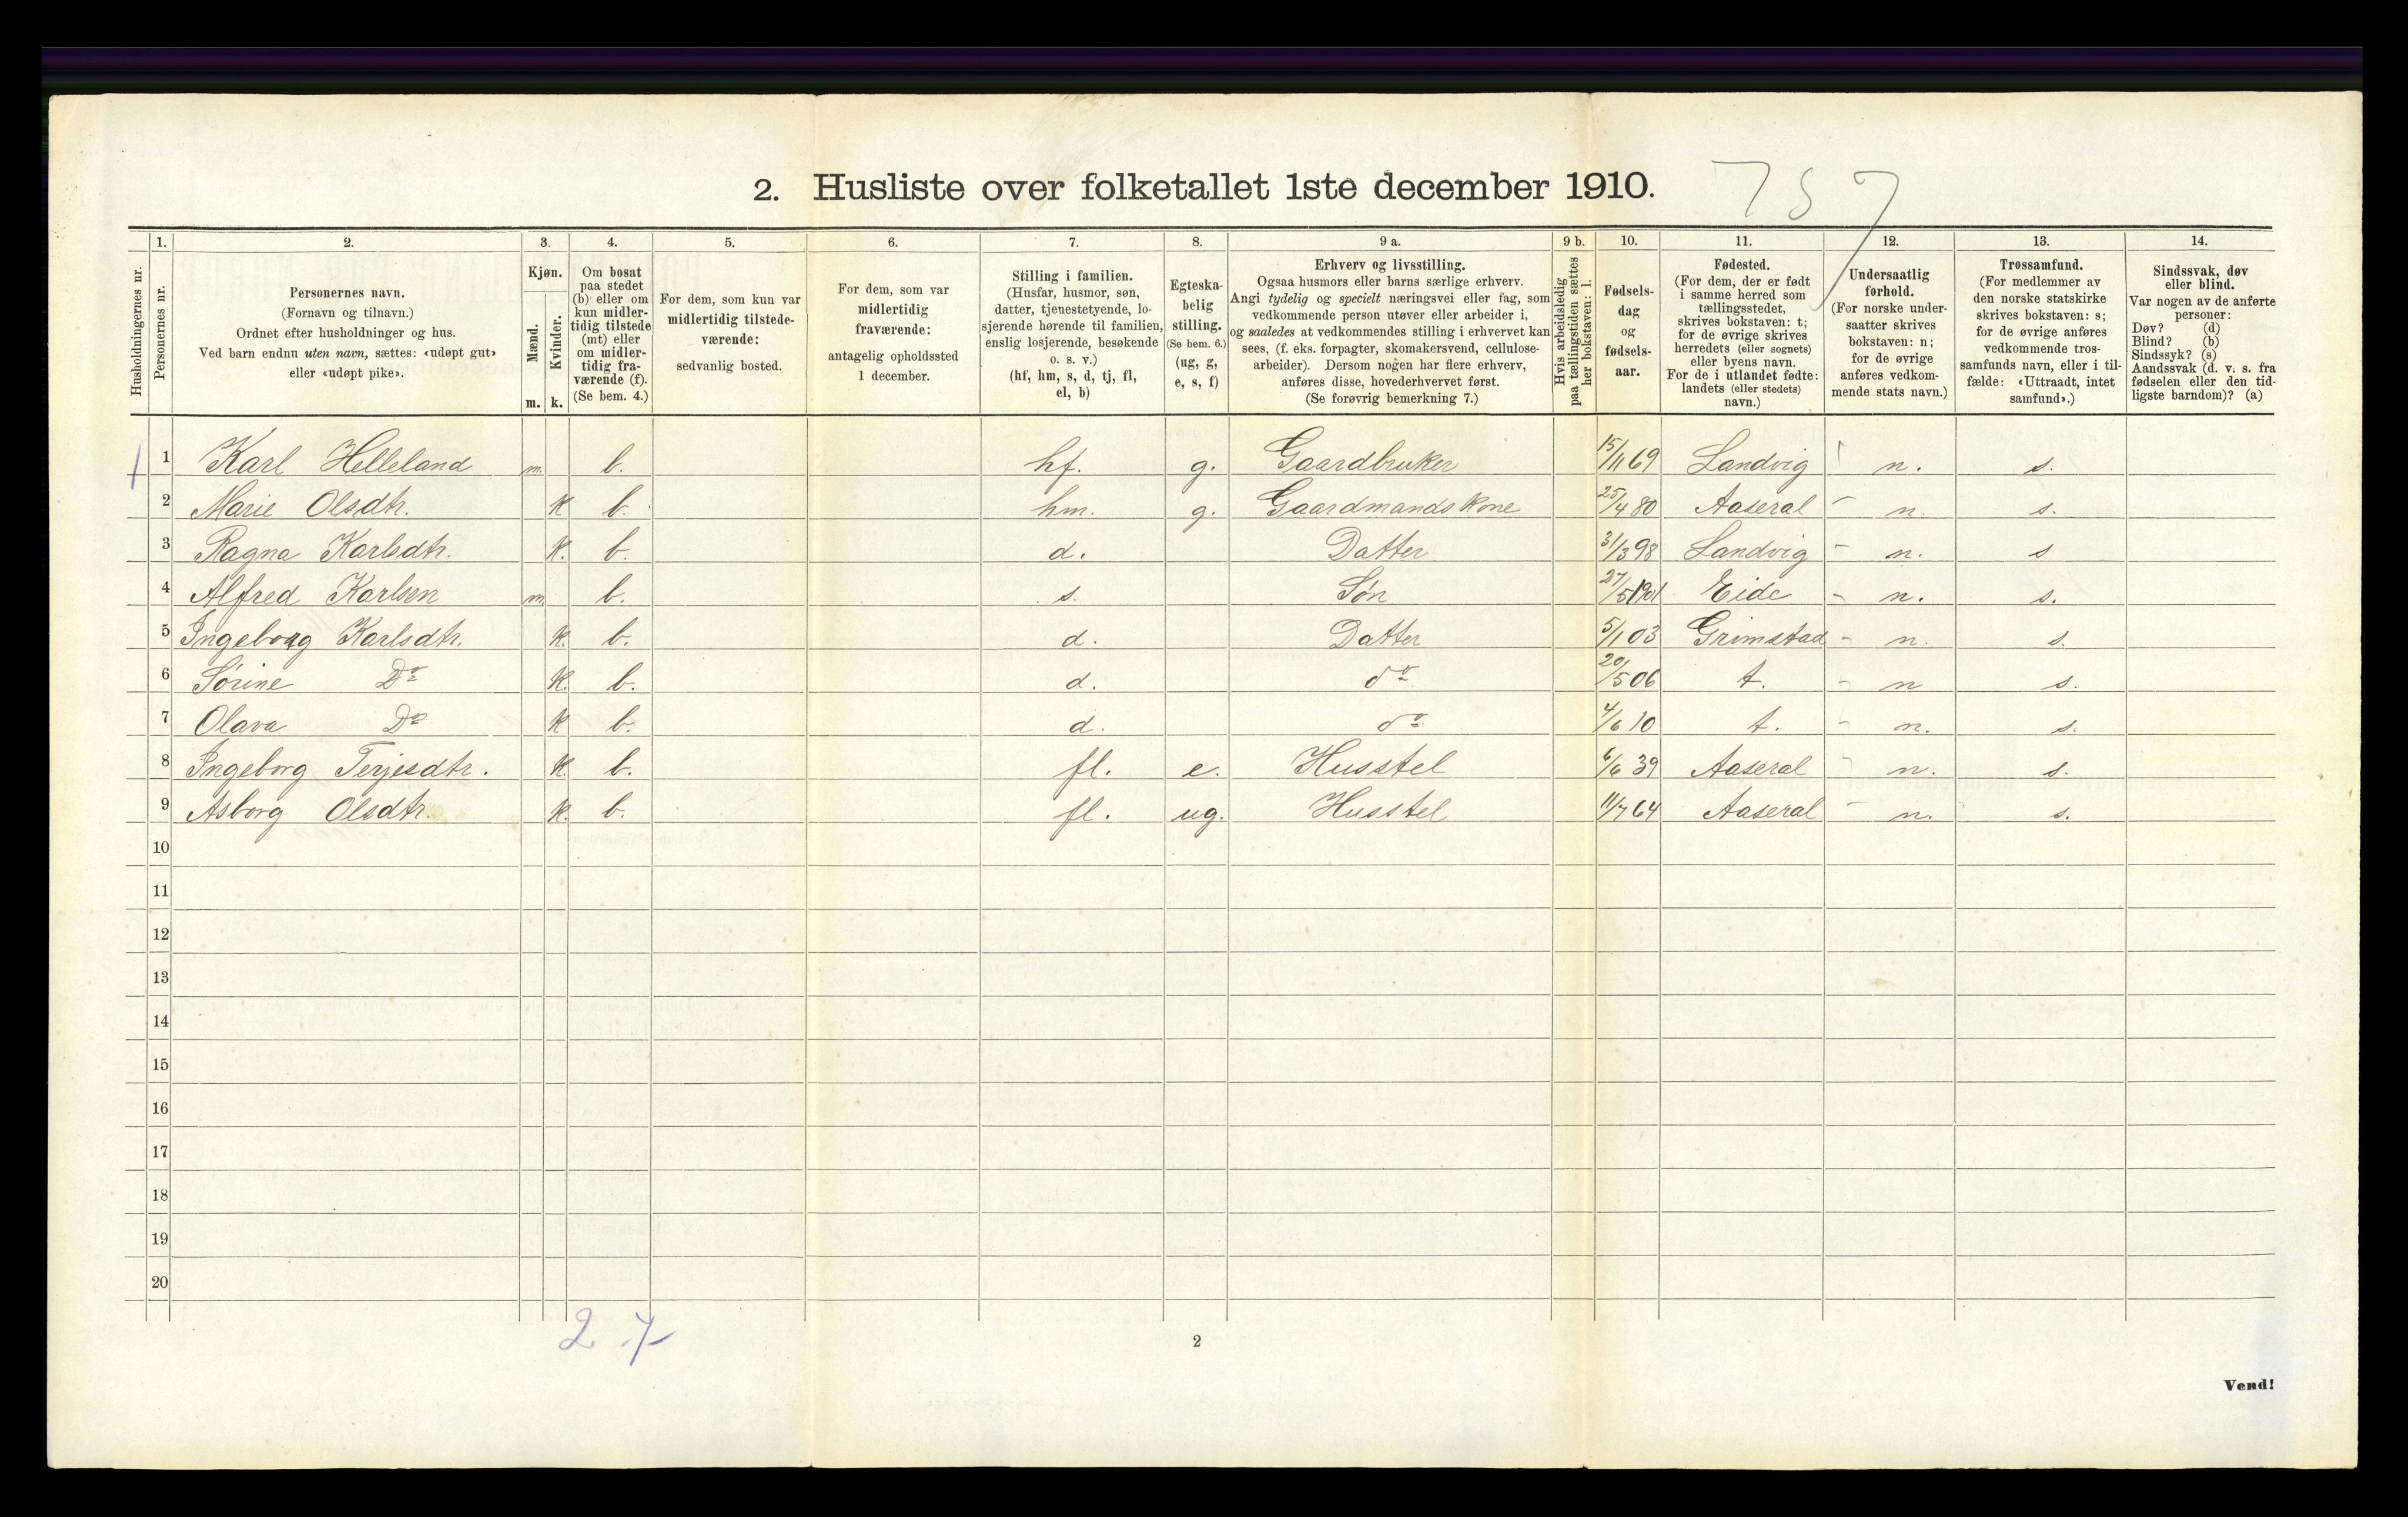 2. Husliste over folketallet 1ste december 1910. 757
1. 2. 3. 4. 5. 6. 7. 8. 9 a. 9 b. 10. 11. 12. 13. 14.
Husholdningernes nr.
Personernes nr.
Personernes navn.
(Fornavn og tilnavn.)
Ordnet efter husholdninger og hus.
Ved barn endnu uten navn, sættes: «udøpt gut»
eller «udøpt pike».
Kjøn.
Mænd.
Kvinder.
m. k.
Om bosat
paa stedet
(b) eller om
kun midler-
tidig tilstede
(mt) eller
om midler-
tidig fra-
værende (f).
(Se bem. 4.)
For dem, som kun var
midlertidig tilstede-
værende:
sedvanlig bosted.
For dem, som var
midlertidig
fraværende:
antagelig opholdssted
1 december.
Stilling i familien.
(Husfar, husmor, søn,
datter, tjenestetyende, lo-
sjerende hørende til familien,
enslig losjerende, besøkende
o. s. v.)
(hf, hm, s, d, tj, fl,
el, b)
Egteska-
belig
stilling.
(Se bem. 6.)
(ug, g,
e, s, f)
Erhverv og livsstilling.
Ogsaa husmors eller barns særlige erhverv.
Angi tydelig og specielt næringsvei eller fag, som
vedkommende person utøver eller arbeider i,
og saaledes at vedkommendes stilling i erhvervet kan
sees, (f. eks. forpagter, skomakersvend, cellulose-
arbeider). Dersom nogen har flere erhverv,
anføres disse, hovederhvervet først.
(Se forøvrig bemerkning 7.)
Hvis arbeidsledig
paa tællingstiden sættes
her bokstaven: l.
Fødsels-
dag
og
fødsels-
aar.
Fødested.
(For dem, der er født
i samme herred som
tællingsstedet,
skrives bokstaven: t;
for de øvrige skrives
herredets (eller sognets)
eller byens navn.
For de i utlandet fødte:
landets (eller stedets)
navn.)
Undersaatlig
forhold.
(For norske under-
saatter skrives
bokstaven: n;
for de øvrige
anføres vedkom-
mende stats navn.)
Trossamfund.
(For medlemmer av
den norske statskirke
skrives bokstaven: s;
for de øvrige anføres
vedkommende tros-
samfunds navn, eller i til-
fælde: «Uttraadt, intet
samfund».)
Sindssvak, døv
eller blind.
Var nogen av de anførte
personer:
Døv? (d)
Blind? (b)
Sindssyk? (s)
Aandssvak (d. v. s. fra
fødselen eller den tid-
ligste barndom)? (a)
1 Karl Helleland m. b. hf. g. Gaardbruker 15/11 69 Landvig n. s.
2 Marie Olsdtr. k b. hm. g. Gaardmandskone 25/4 80 Aaseral - n. s.
3 Ragna Karlsdtr. k. b. d. Datter 31/3 98 Landvig - n. s
4 Alfred Karlsen m b. s. Søn 27/5 1901 Eide - n. s.
5 Ingeborg Karlsdtr. k. b. d. Datter 5/1 03 Grimstad - n. s.
6 Sørine Do k. b. d. do 20/5 06 t. - n s.
7 Olava Do k b. d. do 4/6 10 t. - n. s.
8 Ingeborg Terjesdtr. k. b. fl. e. Husstel 6/6 39 Aaseral - n. s.
9 Asborg Olsdtr. k. b. fl. ug. Husstel 11/7 64 Aaseral - n. s.
10
11
12
13
14
15
16
17
18
19
20
2 7
2
Vend!